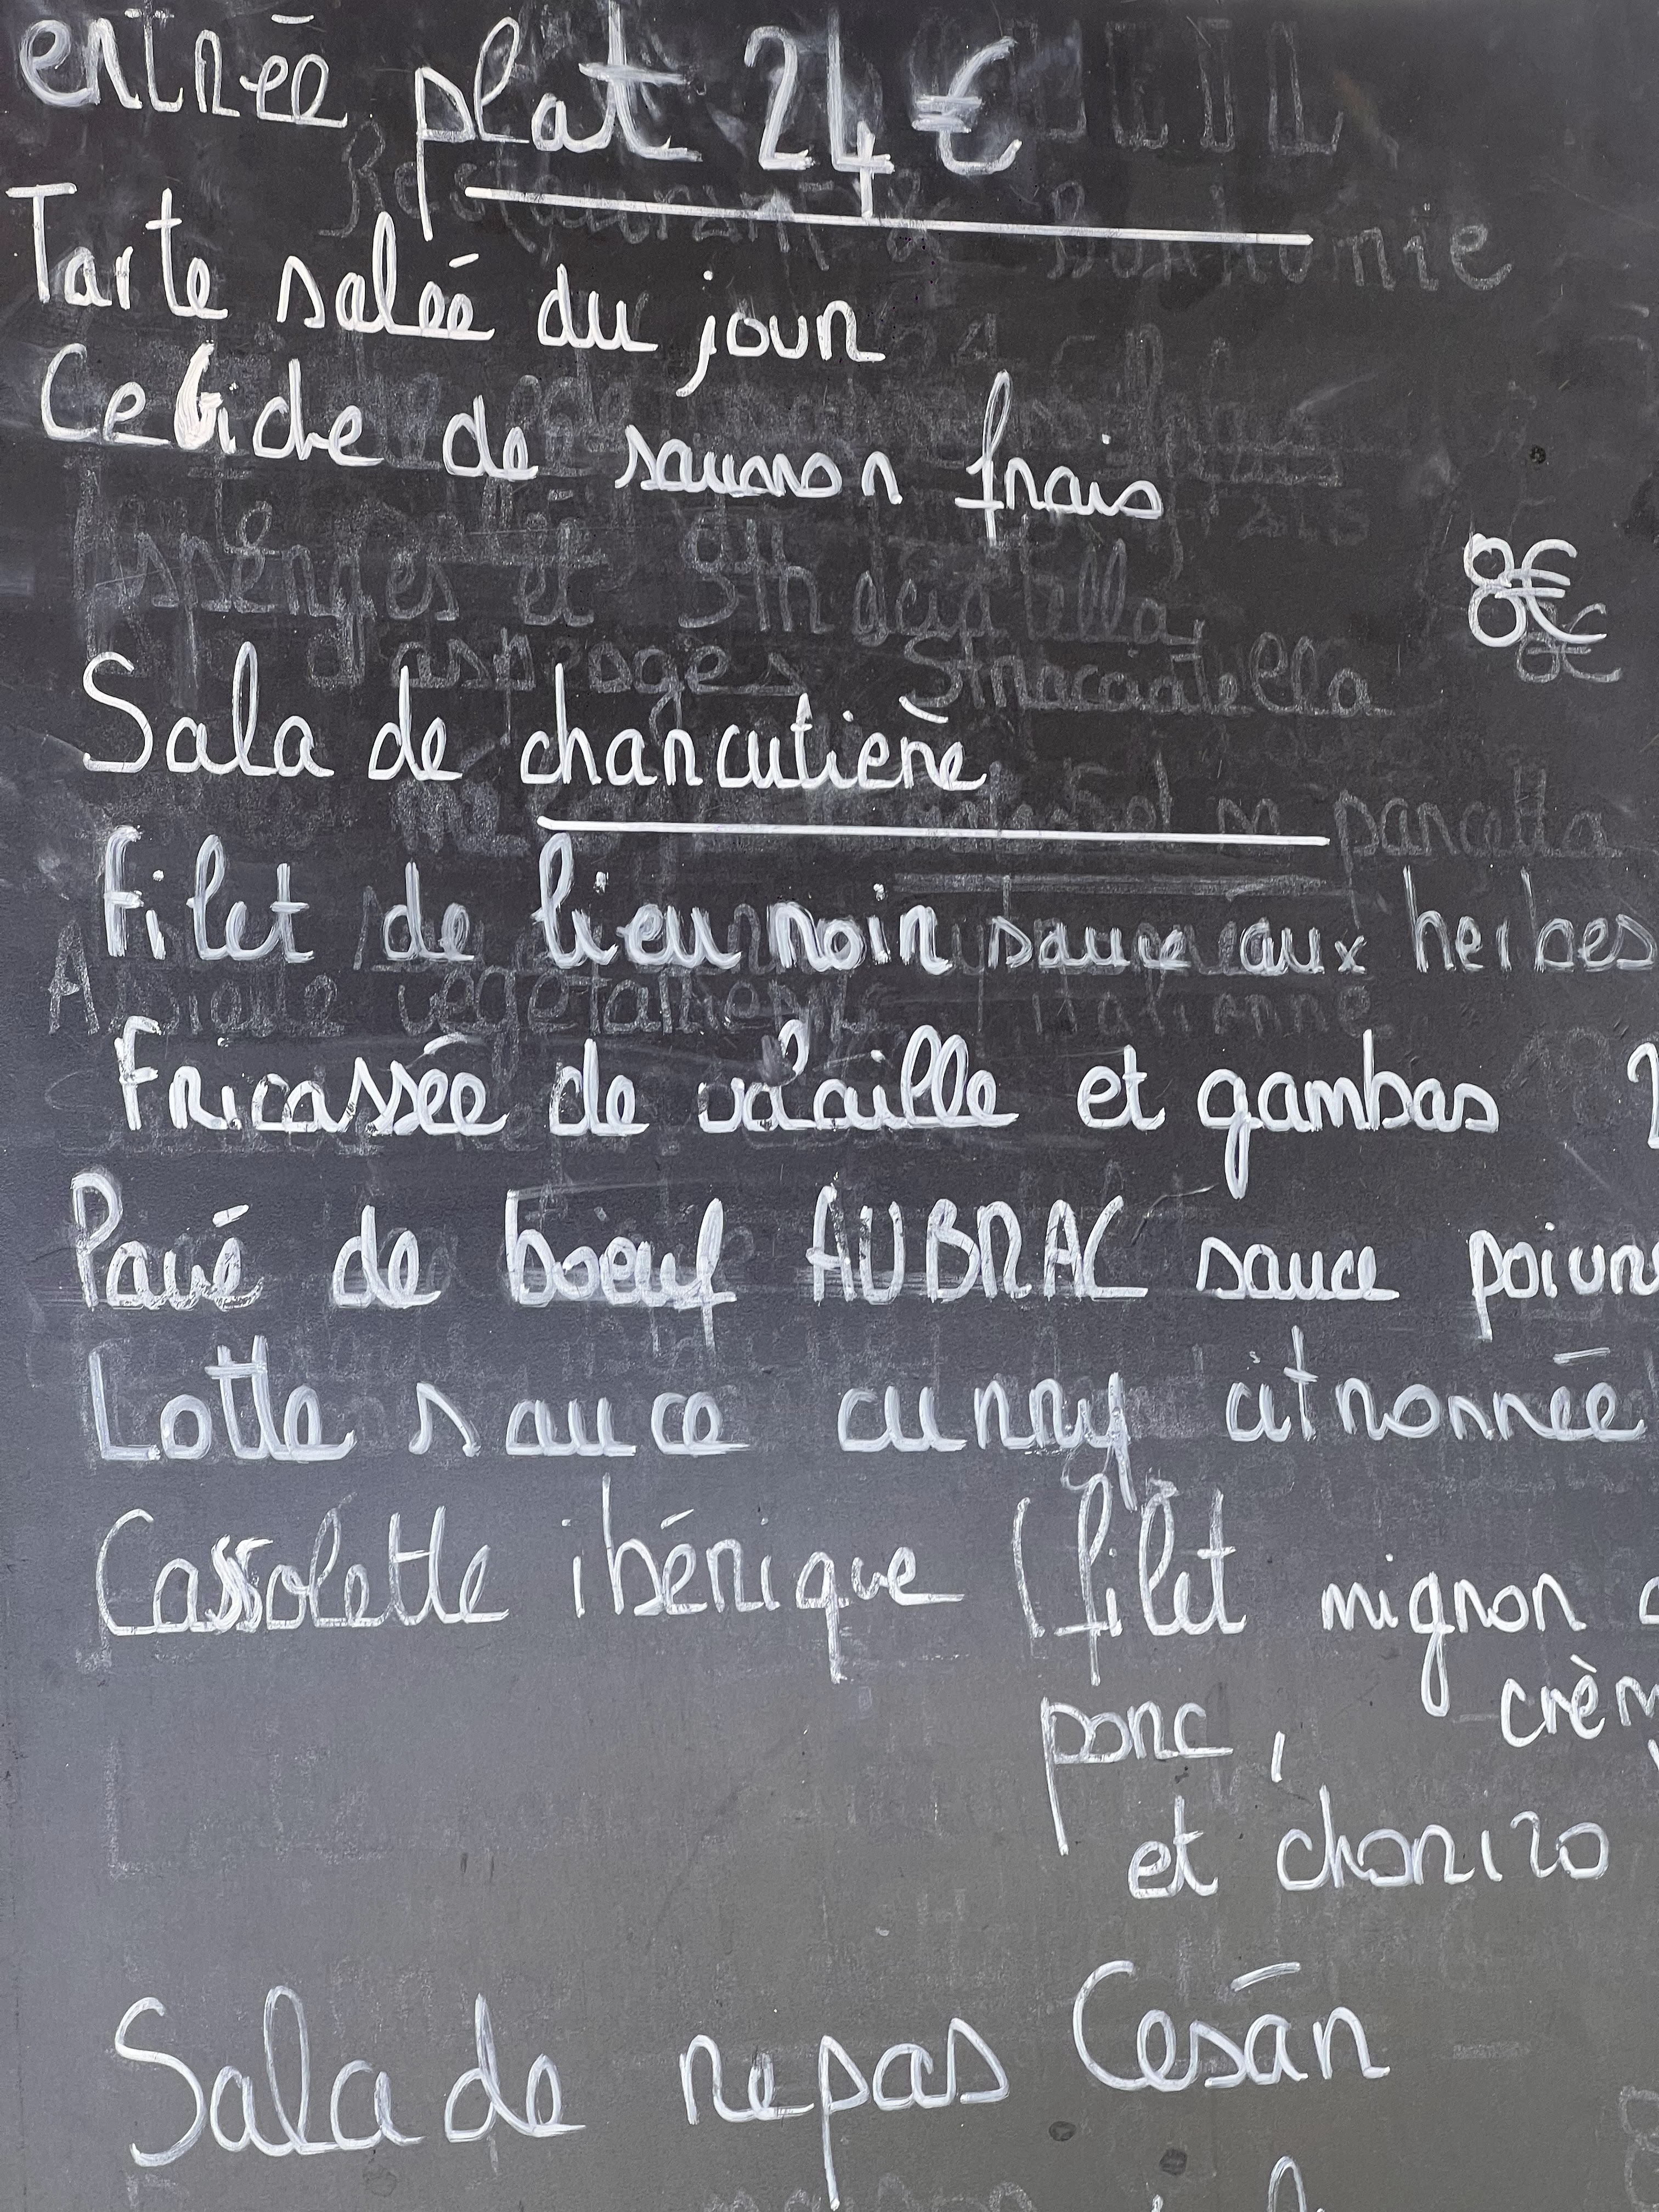 entrée plat 24€
Tarte salée du jour
Ceviche de saumon frais
8€
Salade charcutière
Filet de lieu noir sauce aux herbes
Fricassée de volaille et gambas
Pavé de boeuf AUBRAC sauce poivr
Lotte sauce curry citronnée
Cassolette ibérique (filet mignon
porc, crèm
et chorizo
Salade repas César